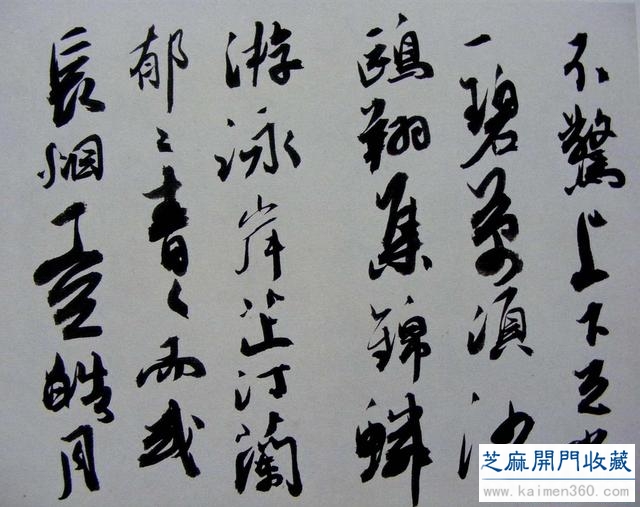 不驚上下天光
一碧萬頃沙
鷗翔集錦鱗
游泳岸芷汀蘭
郁〻青〻而或
長烟一空皓月
芝麻開門收藏
www.kaimen360.com